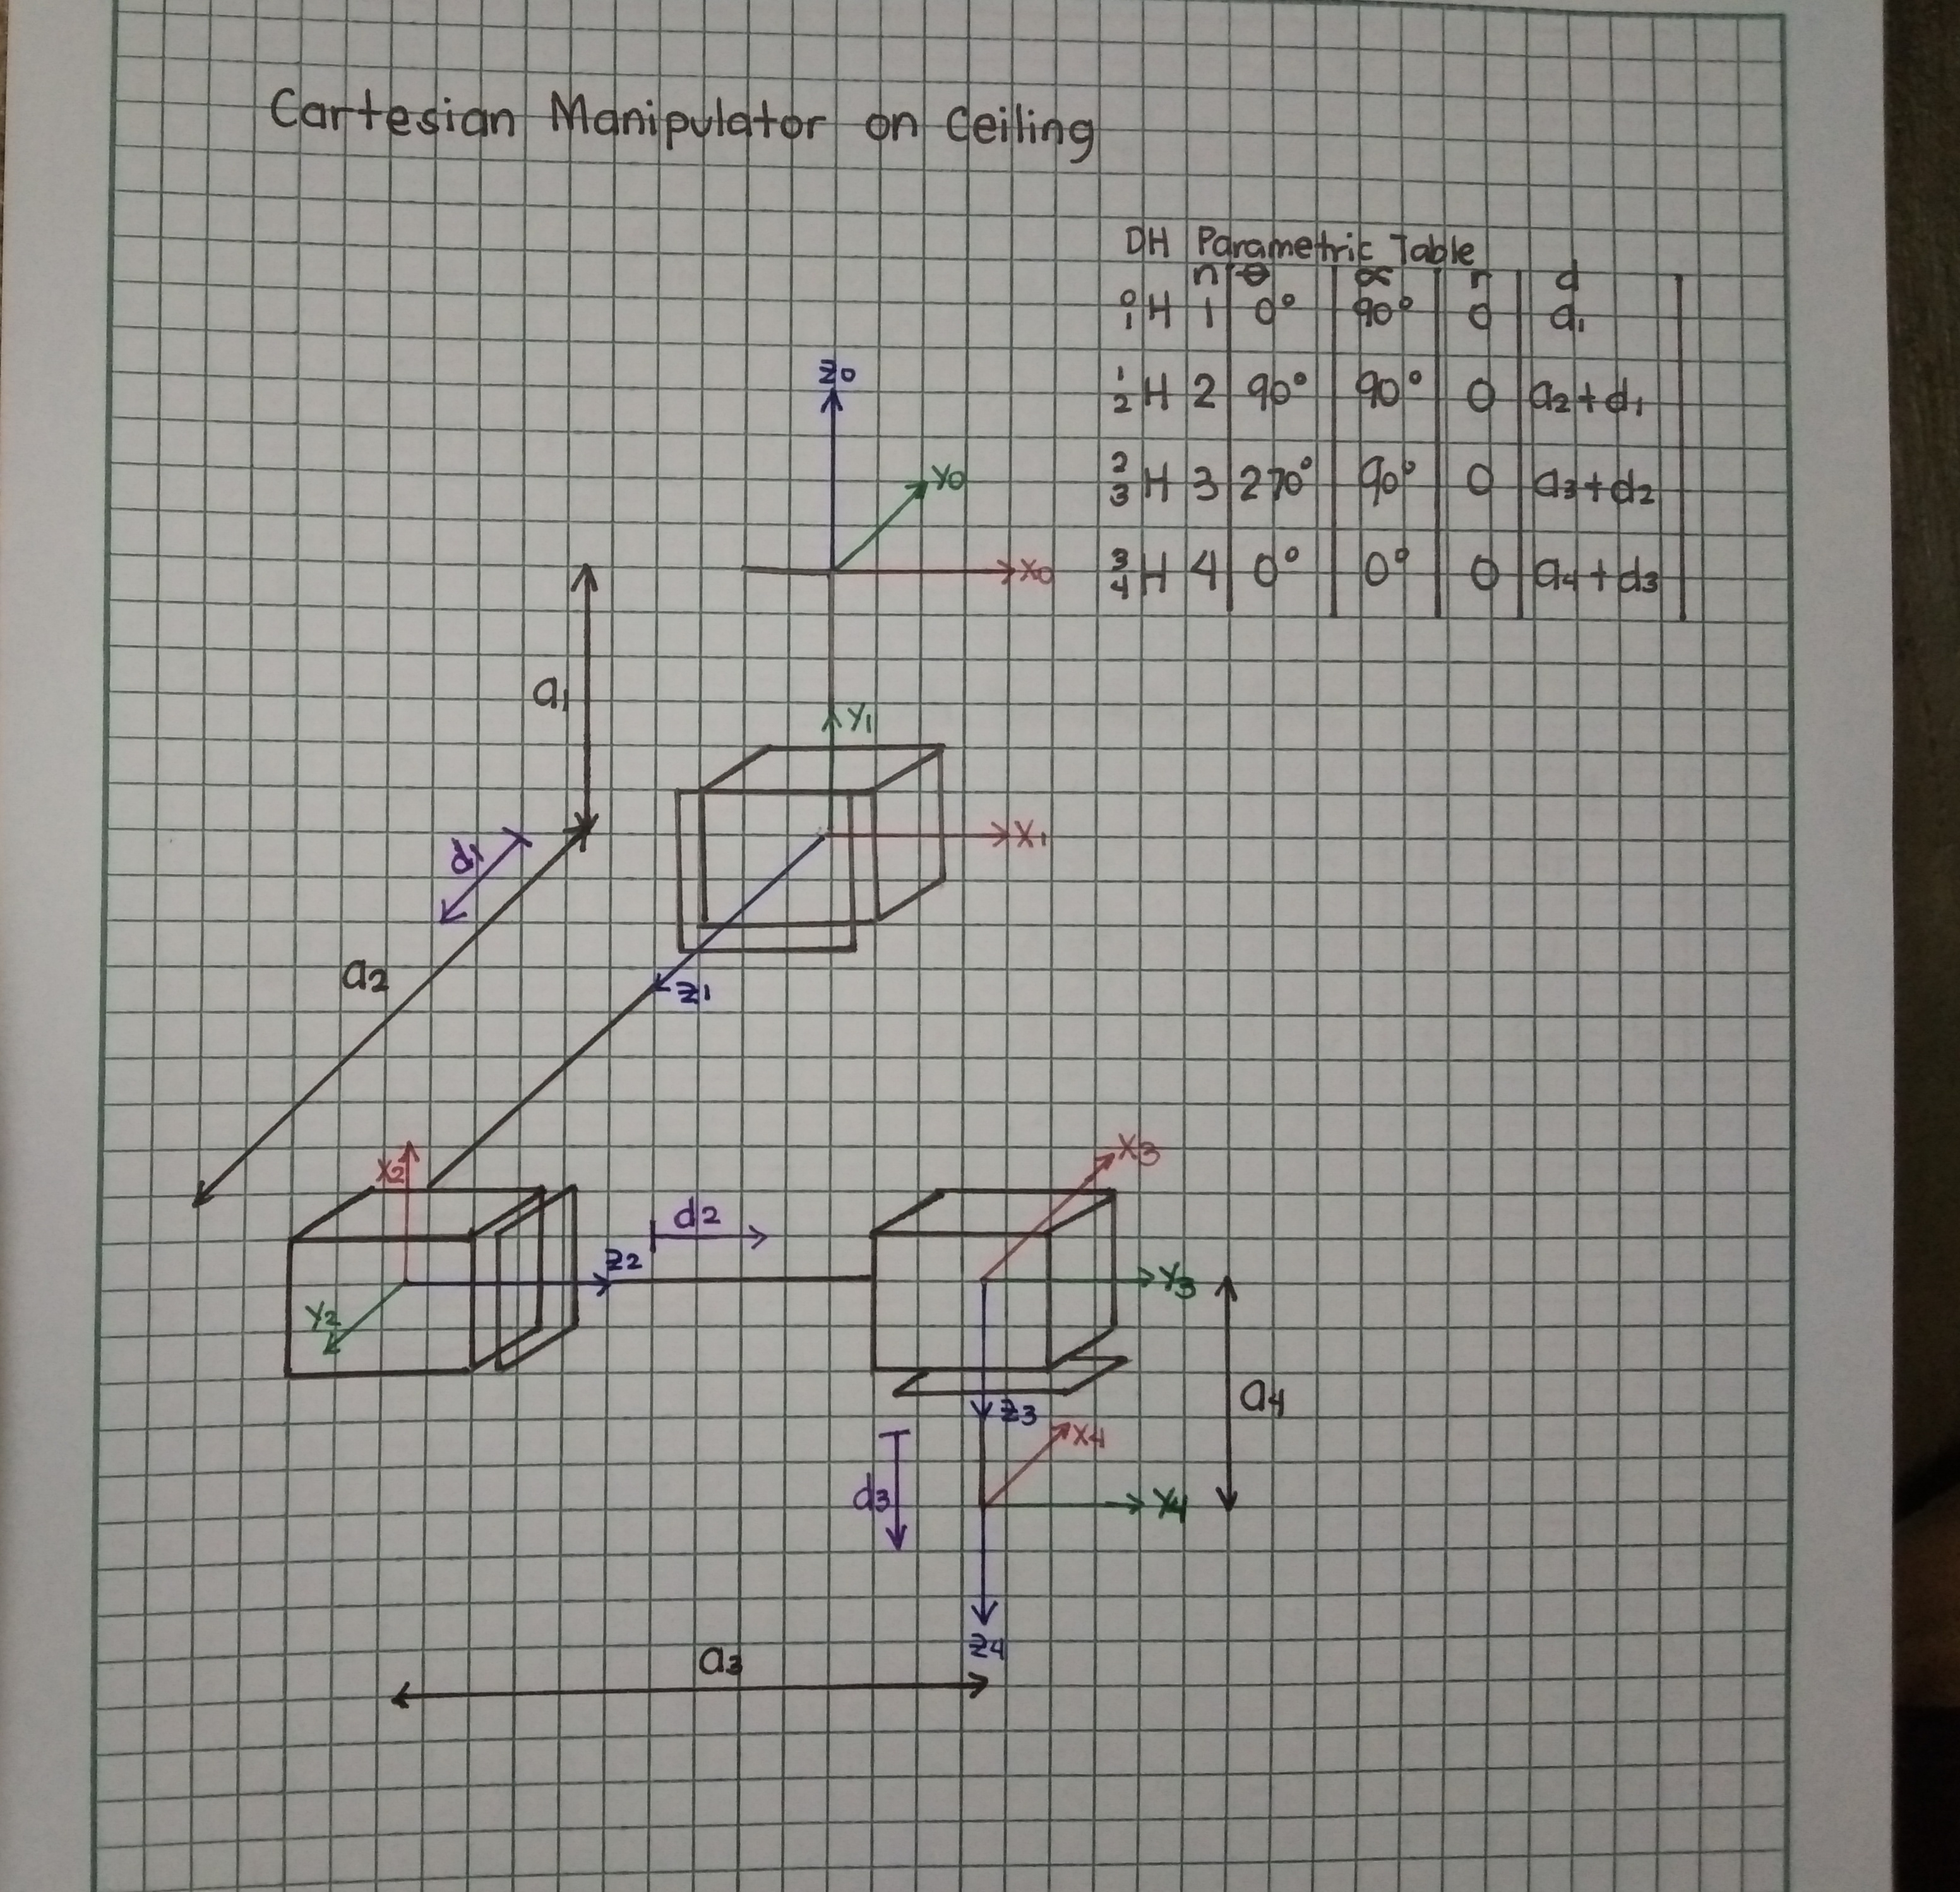 Cartesian Manipulator on Ceiling
DH Parametric Table
n θ α r d
0 1 H 1 0° 90° 0 a1
1 2 H 2 90° 90° 0 a2+d1
2 3 H 3 270° 90° 0 a3+d2
3 4 H 4 0° 0° 0 a4+d3
z0
y0
x0
a1
y1
d1
x1
a2
z1
x2
x3
d2
z2
y3
y2
a4
z3
x4
d3
y4
z4
a3